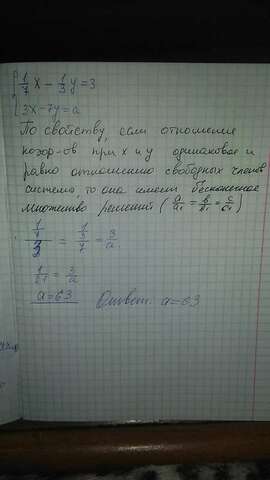 { 1/7 x - 1/3 y = 3
{ 3x - 7y = a
По свойству, если отношение
коэф-ов при x и y одинаковое и
равно отношению свободных членов
системы, то она имеет бесконечное
множество решений ( a/a₁ = b/b₁ = c/c₁ )
1/7 / 3 = 1/3 / 7 = 3/a
1/21 = 3/a
a=63 Ответ: a=63